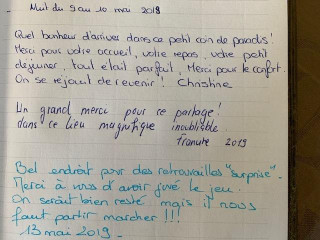 Nuit du 9 au 10 mai 2019
Quel bonheur d'arriver dans ce petit coin de paradis !
Merci pour votre accueil, votre repas, votre petit
déjeuner, tout était parfait, Merci pour le confort.
On se réjouit de revenir ! Christine
Un grand merci pour ce partage !
dans ce lieu magnifique inoubliable
2019
Bel endroit pour des retrouvailles "surprise".
Merci à vous d'avoir joué le jeu.
On serait bien resté mais il nous
faut partir marcher !!!
13 mai 2019.